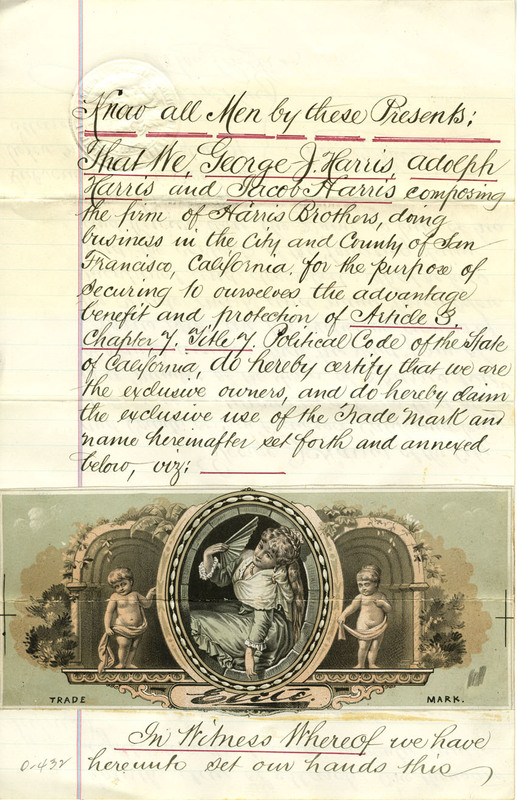 Know all Men by these Presents;
That We, George J. Harris, adolph
Harris and Jacob Harris composing
the firm of Harris Brothers, doing
business in the City and County of San
Francisco, California, for the purpose of
securing to ourselves the advantage
benefit and protection of Article 3,
Chapter 7, Title 7, Political Code of the State
of California, do hereby certify that we are
the exclusive owners, and do hereby claim
the exclusive use of the Trade Mark and
name hereinafter set forth and annexed
below, viz:
Elite
TRADE MARK.
In Witness Whereof we have
hereunto set our hands this
0-432